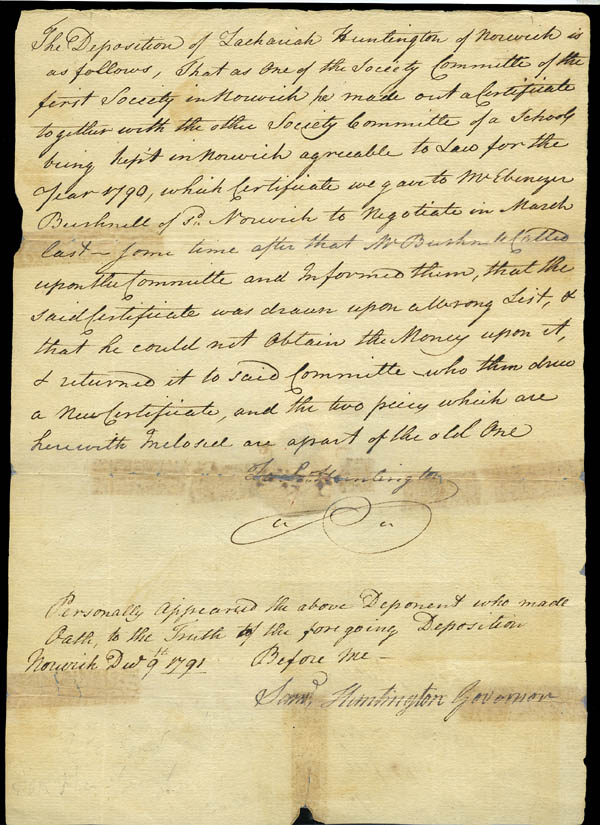 The Deposition of Zachariah Huntington of Norwich is
as follows, That as One of the Society Committe of the
first Society in Norwich he made out a Certificate
together with the other Society Committe of a School
being kept in Norwich agreeable to Law for the
Year 1790, which Certificate we gave to Mr Ebenezer
Bushnell of sd. Norwich to Negotiate in March
last – some time after that Mr Bushnell Called
upon the Committe and Informed them, that the
said Certificate was drawn upon a Wrong List, &
that he could not Obtain the Money upon it,
& returned it to said Committe – who then drew
a New Certificate, and the two pieces which are
herewith Inclosed are apart of the old One
Huntington
Personally Appeared the above Deponent who made
Oath, to the Truth of the foregoing Deposition
Norwich Decr 9th 1791 Before Me –
Saml. Huntington Governor